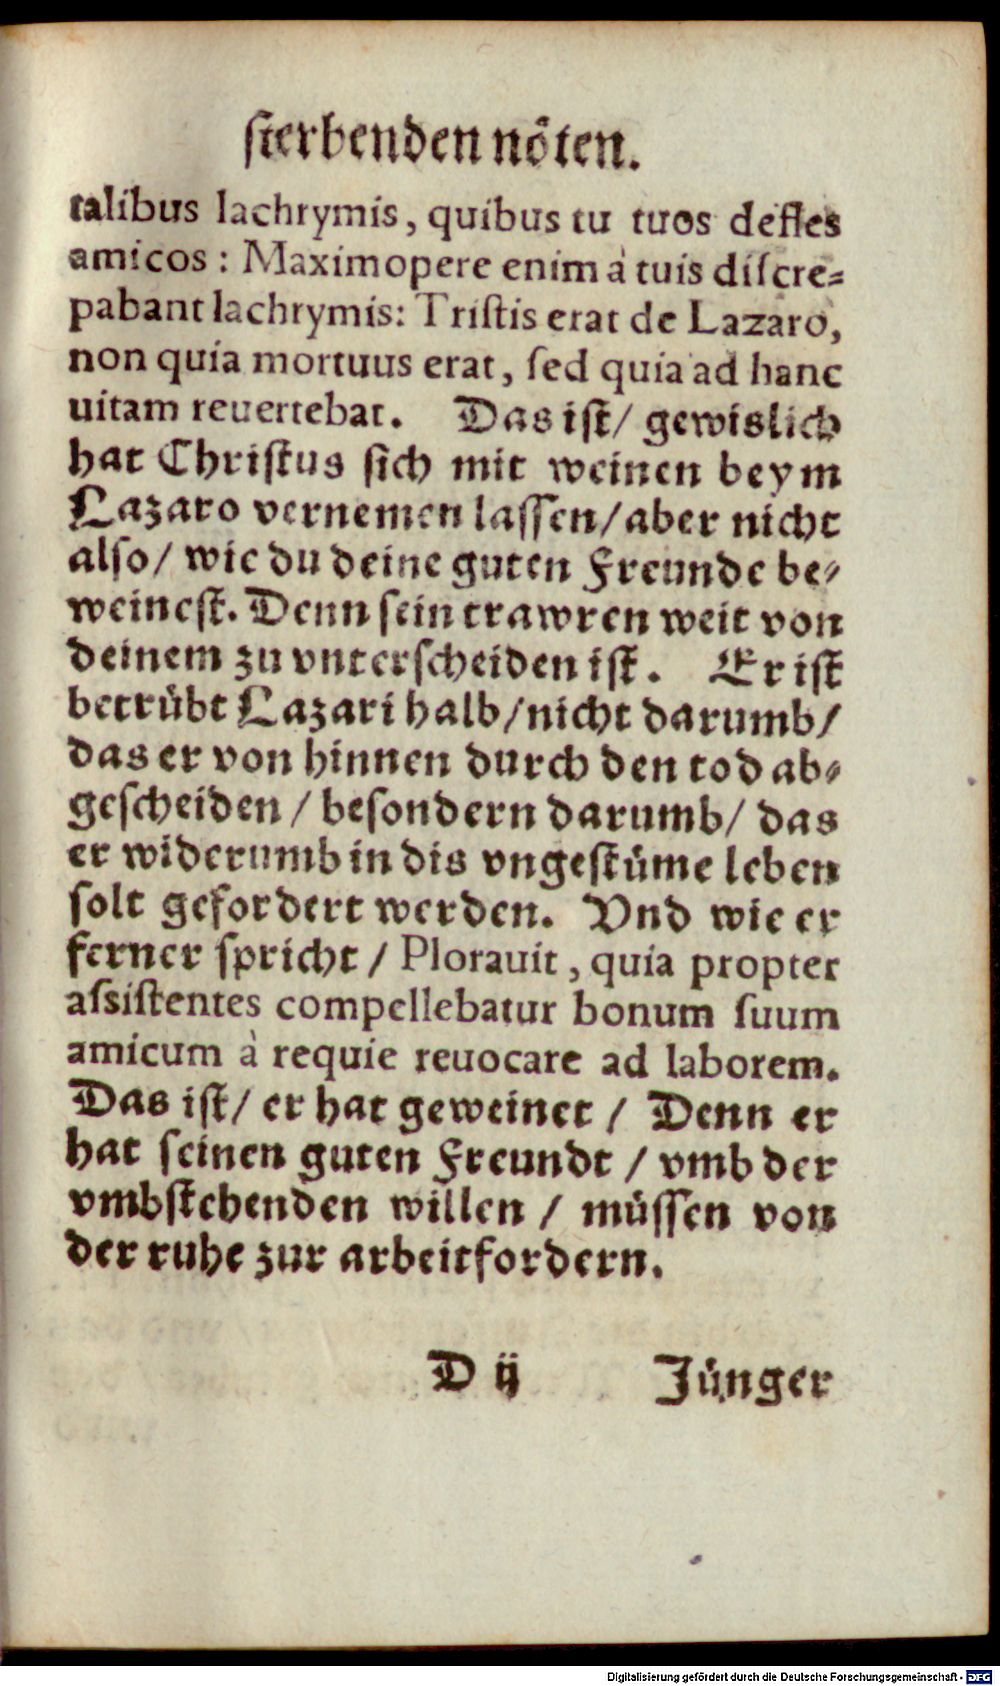 ſterbenden nöten.
talibus lachrymis, quibus tu tuos defles
amicos: Maximopere enim à tuis diſcre⸗
pabant lachrymis: Triſtis erat de Lazaro,
non quia mortuus erat, ſed quia ad hanc
uitam reuertebat. Das iſt/ gewislich
hat Chriſtus ſich mit weinen beym
Lazaro vernemen laſſen/ aber nicht
alſo/ wie du deine guten Freunde be⸗
weineſt. Denn ſein trawren weit von
deinem zu vnterſcheiden iſt. Er iſt
betrübt Lazari halb/ nicht darumb/
das er von hinnen durch den tod ab⸗
geſcheiden/ beſondern darumb/ das
er widerumb in dis vngeſtüme leben
ſolt gefordert werden. Vnd wie er
ferner ſpricht/ Plorauit, quia propter
aſsiſtentes compellebatur bonum ſuum
amicum à requie reuocare ad laborem.
Das iſt/ er hat geweinet/ Denn er
hat ſeinen guten Freundt/ vmb der
vmbſtehenden willen/ müſſen von
der ruhe zur arbeit fordern.
D ij Jünger
Digitalisierung gefördert durch die Deutsche Forschungsgemeinschaft - DFG